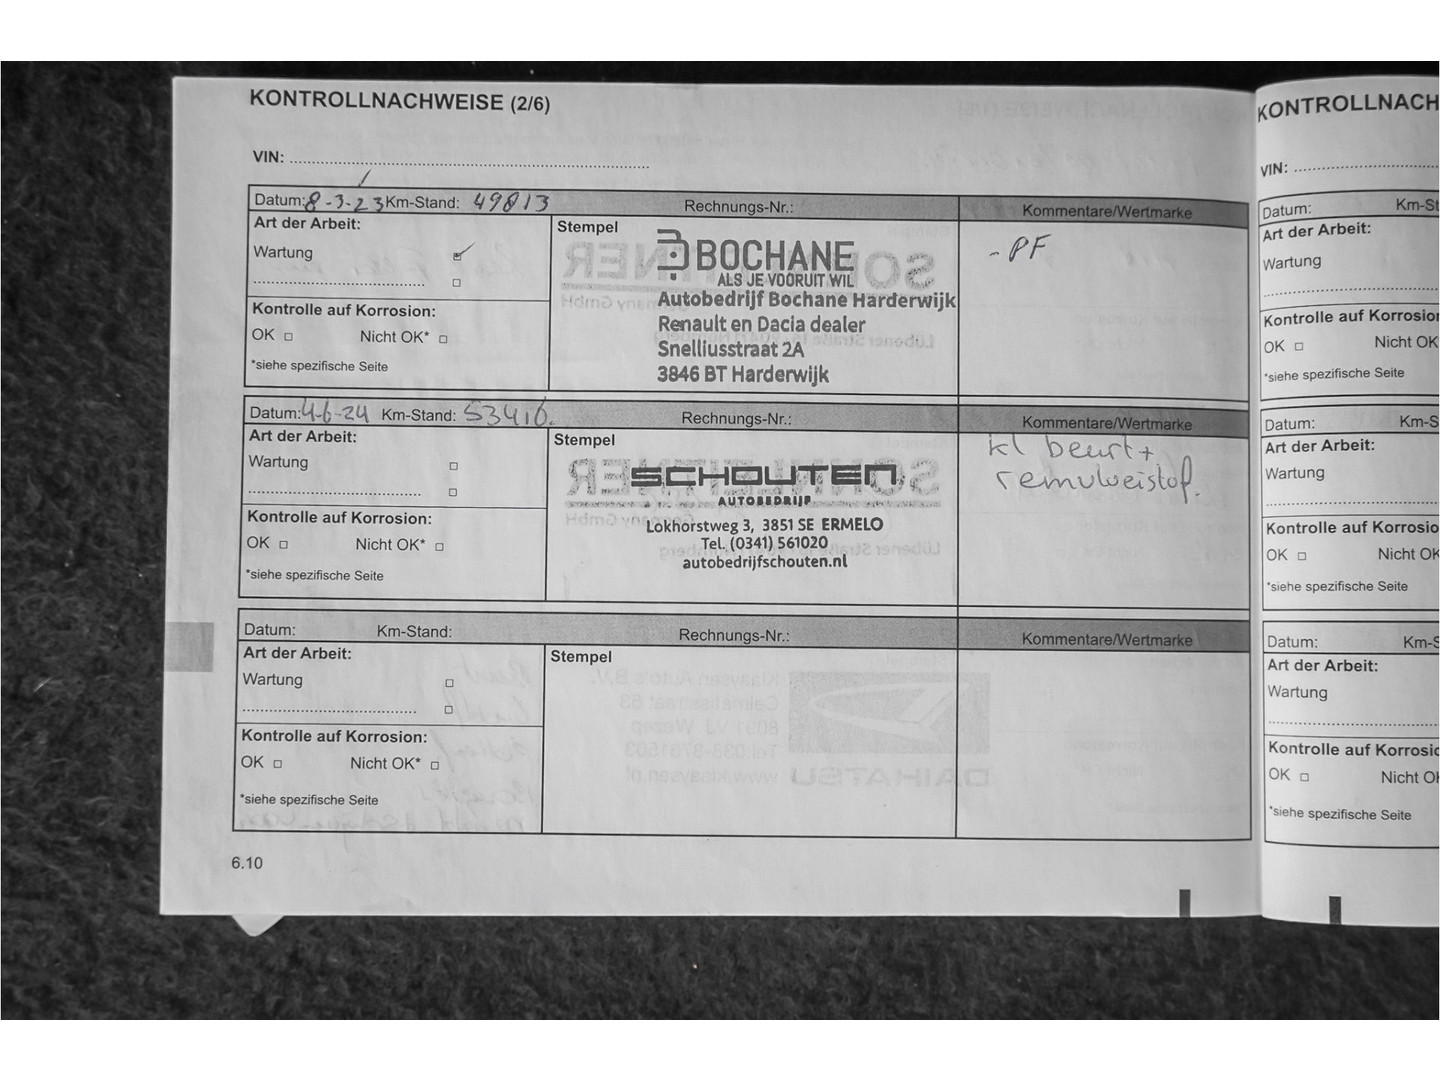 KONTROLLNACHWEISE (2/6)
VIN:
Datum: 8-3-23 Km-Stand: 49813 Rechnungs-Nr.: Kommentare/Wertmarke
Art der Arbeit:
Wartung
Stempel
BOCHANE
ALS JE VOORUIT WIL
Autobedrijf Bochane Harderwijk
Renault en Dacia dealer
Snelliusstraat 2A
3846 BT Harderwijk
- PF
Kontrolle auf Korrosion:
OK Nicht OK*
*siehe spezifische Seite
Datum: 4-6-24 Km-Stand: 53410. Rechnungs-Nr.: Kommentare/Wertmarke
Art der Arbeit:
Wartung
Stempel
SCHOUTEN
AUTOBEDRIJF
Lokhorstweg 3, 3851 SE ERMELO
Tel. (0341) 561020
autobedrijfschouten.nl
kl beurt +
remvloeistof.
Kontrolle auf Korrosion:
OK Nicht OK*
*siehe spezifische Seite
Datum: Km-Stand: Rechnungs-Nr.: Kommentare/Wertmarke
Art der Arbeit:
Wartung
Stempel
Kontrolle auf Korrosion:
OK Nicht OK*
*siehe spezifische Seite
6.10
KONTROLLNACH
VIN:
Datum: Km-St
Art der Arbeit:
Wartung
Kontrolle auf Korrosion
OK Nicht OK
*siehe spezifische Seite
Datum: Km-S
Art der Arbeit:
Wartung
Kontrolle auf Korrosio
OK Nicht OK
*siehe spezifische Seite
Datum: Km-S
Art der Arbeit:
Wartung
Kontrolle auf Korrosio
OK Nicht OK
*siehe spezifische Seite